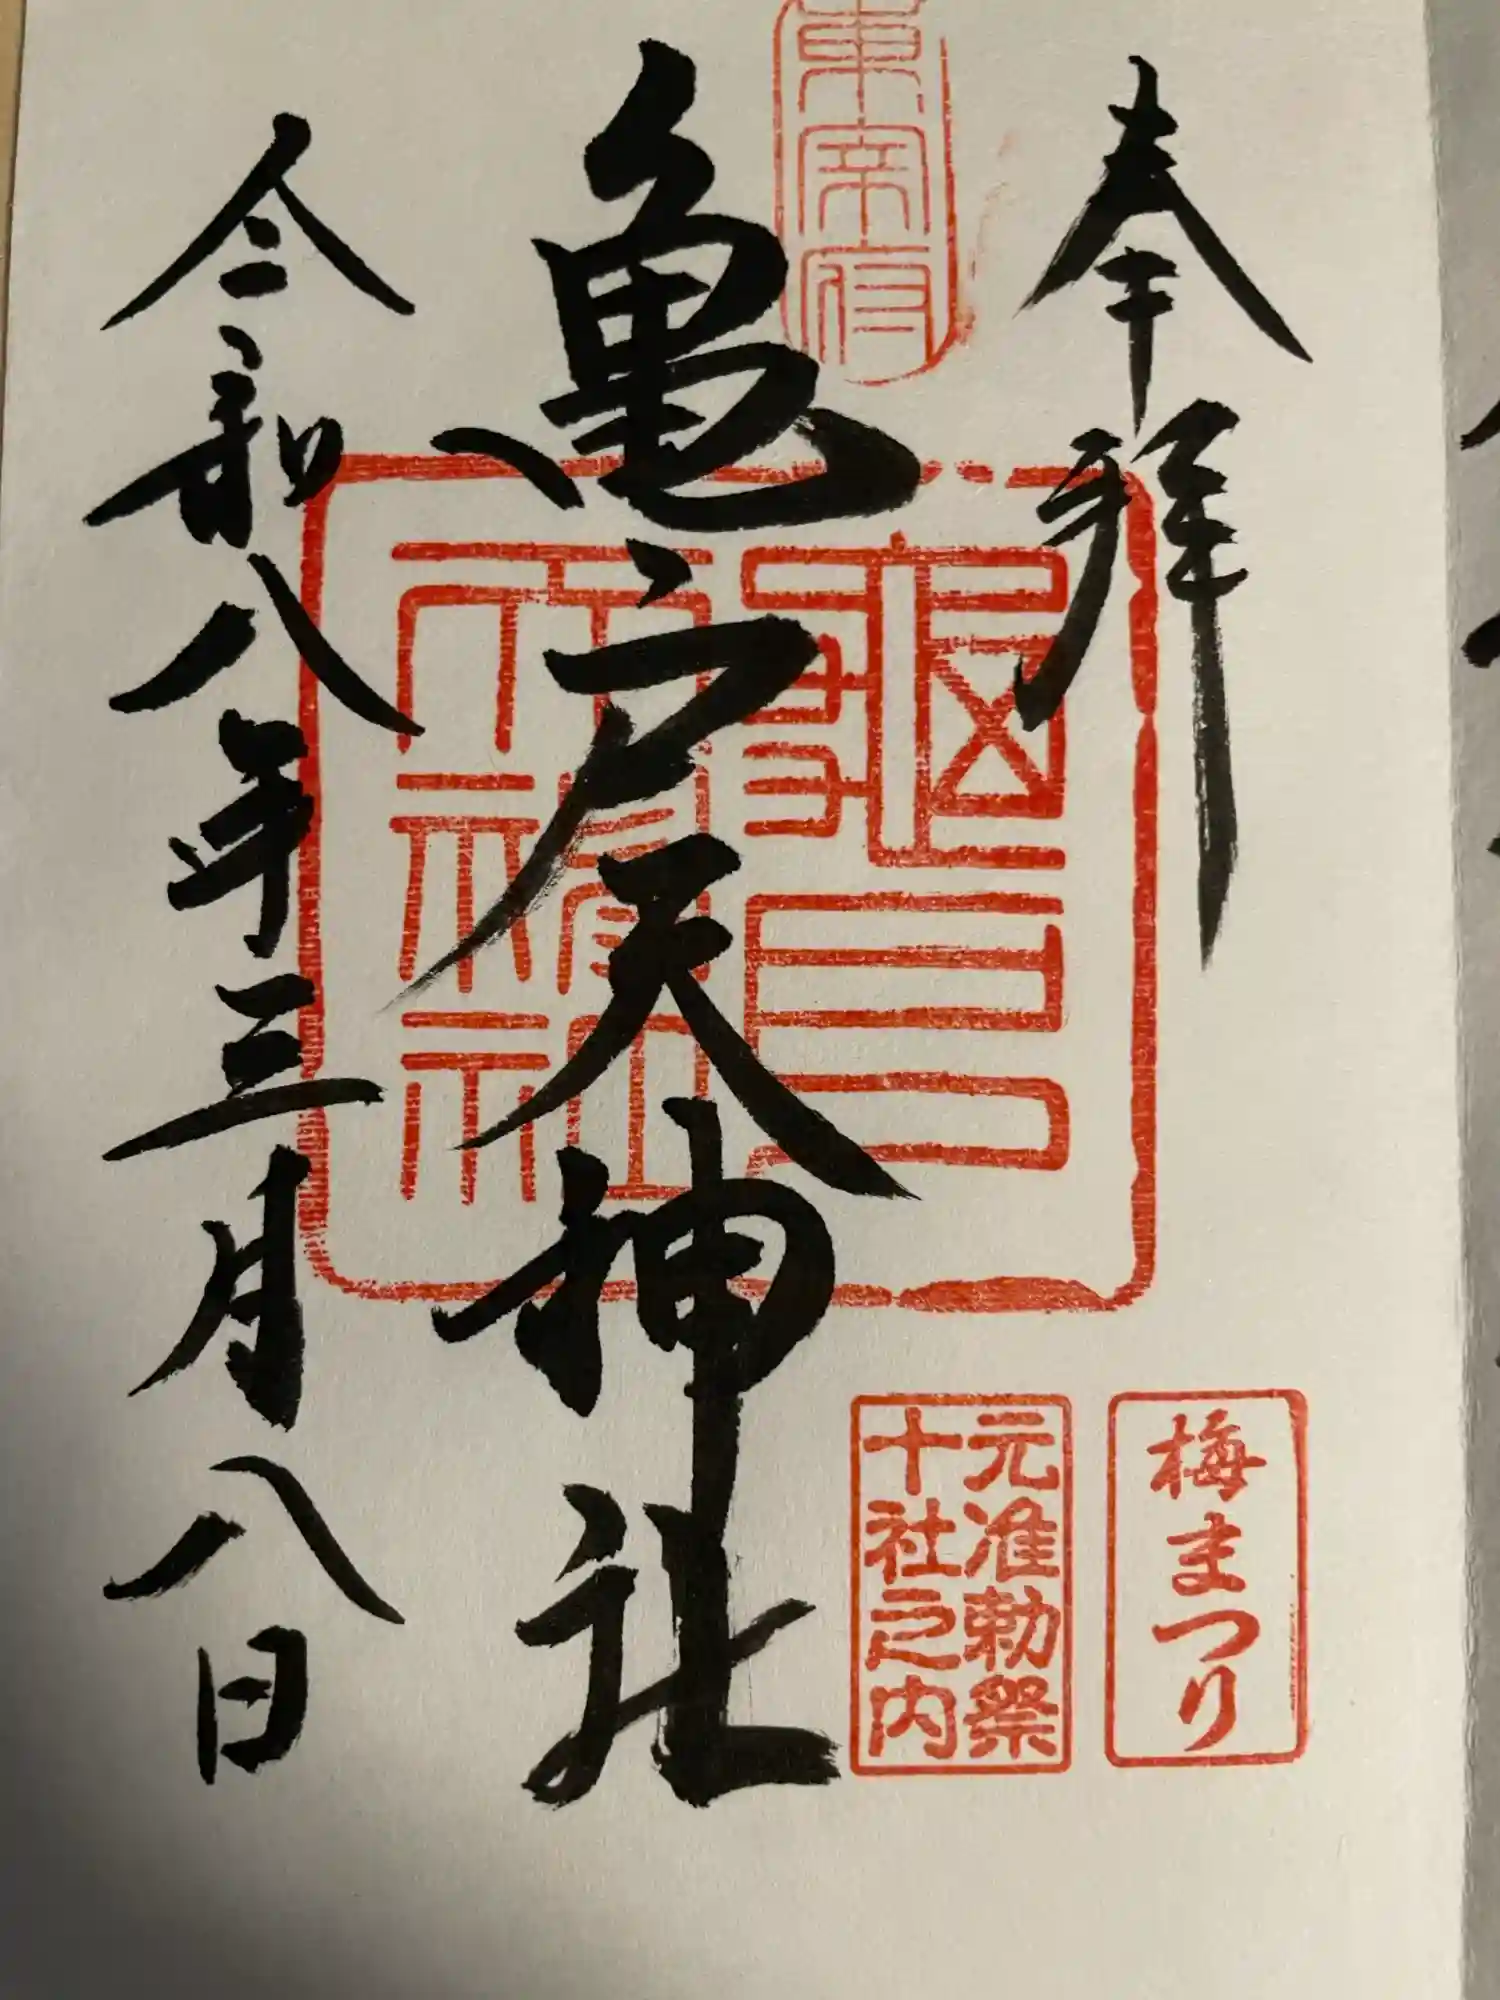 奉拝
梅まつり
元准勅祭
十社之内
東宰府
亀戸天神社
令和八年三月八日